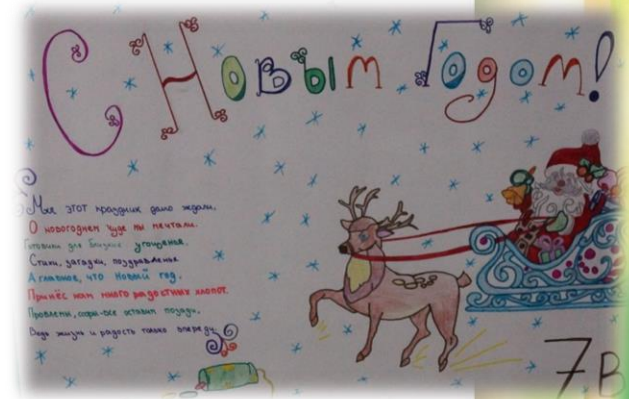 С Новым Годом!
Мы этот праздник давно ждали,
О новогоднем чуде мы мечтали.
Готовили для близких угощения,
Стихи, загадки, поздравления
А главное, что Новый год,
Принёс нам много радостных хлопот.
Проблемы, ссоры-все оставим позади,
Ведь жизнь и радость только впереди
7В